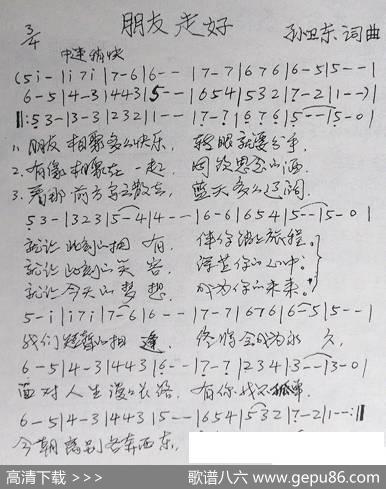 朋友走好
3/4
孙卫东 词曲
中速 稍快
(5 i - | i 7 i | 7 - 6 | 6 - - | 7 - 7 | 6 7 6 | 6 - 5 | 5 - - |
6 - 5 | 4 - 3 | 4 4 3 | 5 - - | 6 5 4 | 5 3 2 | 7 - 2 | 1 - - )|
‖: 5 3 - | 3 - 3 | 2 3 2 | 1 - - | 7 - 7 | 6 7 6 | 5 - - | 5 - 0 |
1. 朋友 相聚多么快乐, 转眼就要分手,
2. 有缘 相聚在一起, 同饮思念的酒.
3. 看那 前方云散去, 蓝天多么辽阔.
5 3 - | 3 2 3 | 5 - 4 | 4 - - | 6 - 6 | 6 5 4 | 5 - - | 5 - 0 |
就让 此刻的拥 有, 伴你踏上旅程.
就让 此刻的笑 容, 深在你的心中.
就让 今天的梦 想. 成为你的未来.
5 - i | i 7 i | 7 - 6 | 6 - - | 7 - 7 | 6 7 6 | 6 - 5 | 5 - - |
我们 短暂的相 逢, 终将会成为永 久,
6 - 5 | 4 - 3 | 4 4 3 | 6 - - | 7 - 7 | 2 3 4 | 3 - - | 3 - 0 |
面对 人生漫的长路, 有你我不孤单.
6 - 5 | 4 - 3 | 4 4 3 | 5 - - | 6 5 4 | 5 3 2 | 7 - 2 | 1 - - :‖
今朝 离别各奔西东,
高清下载 >>>
歌谱八六 www.gepu86.com